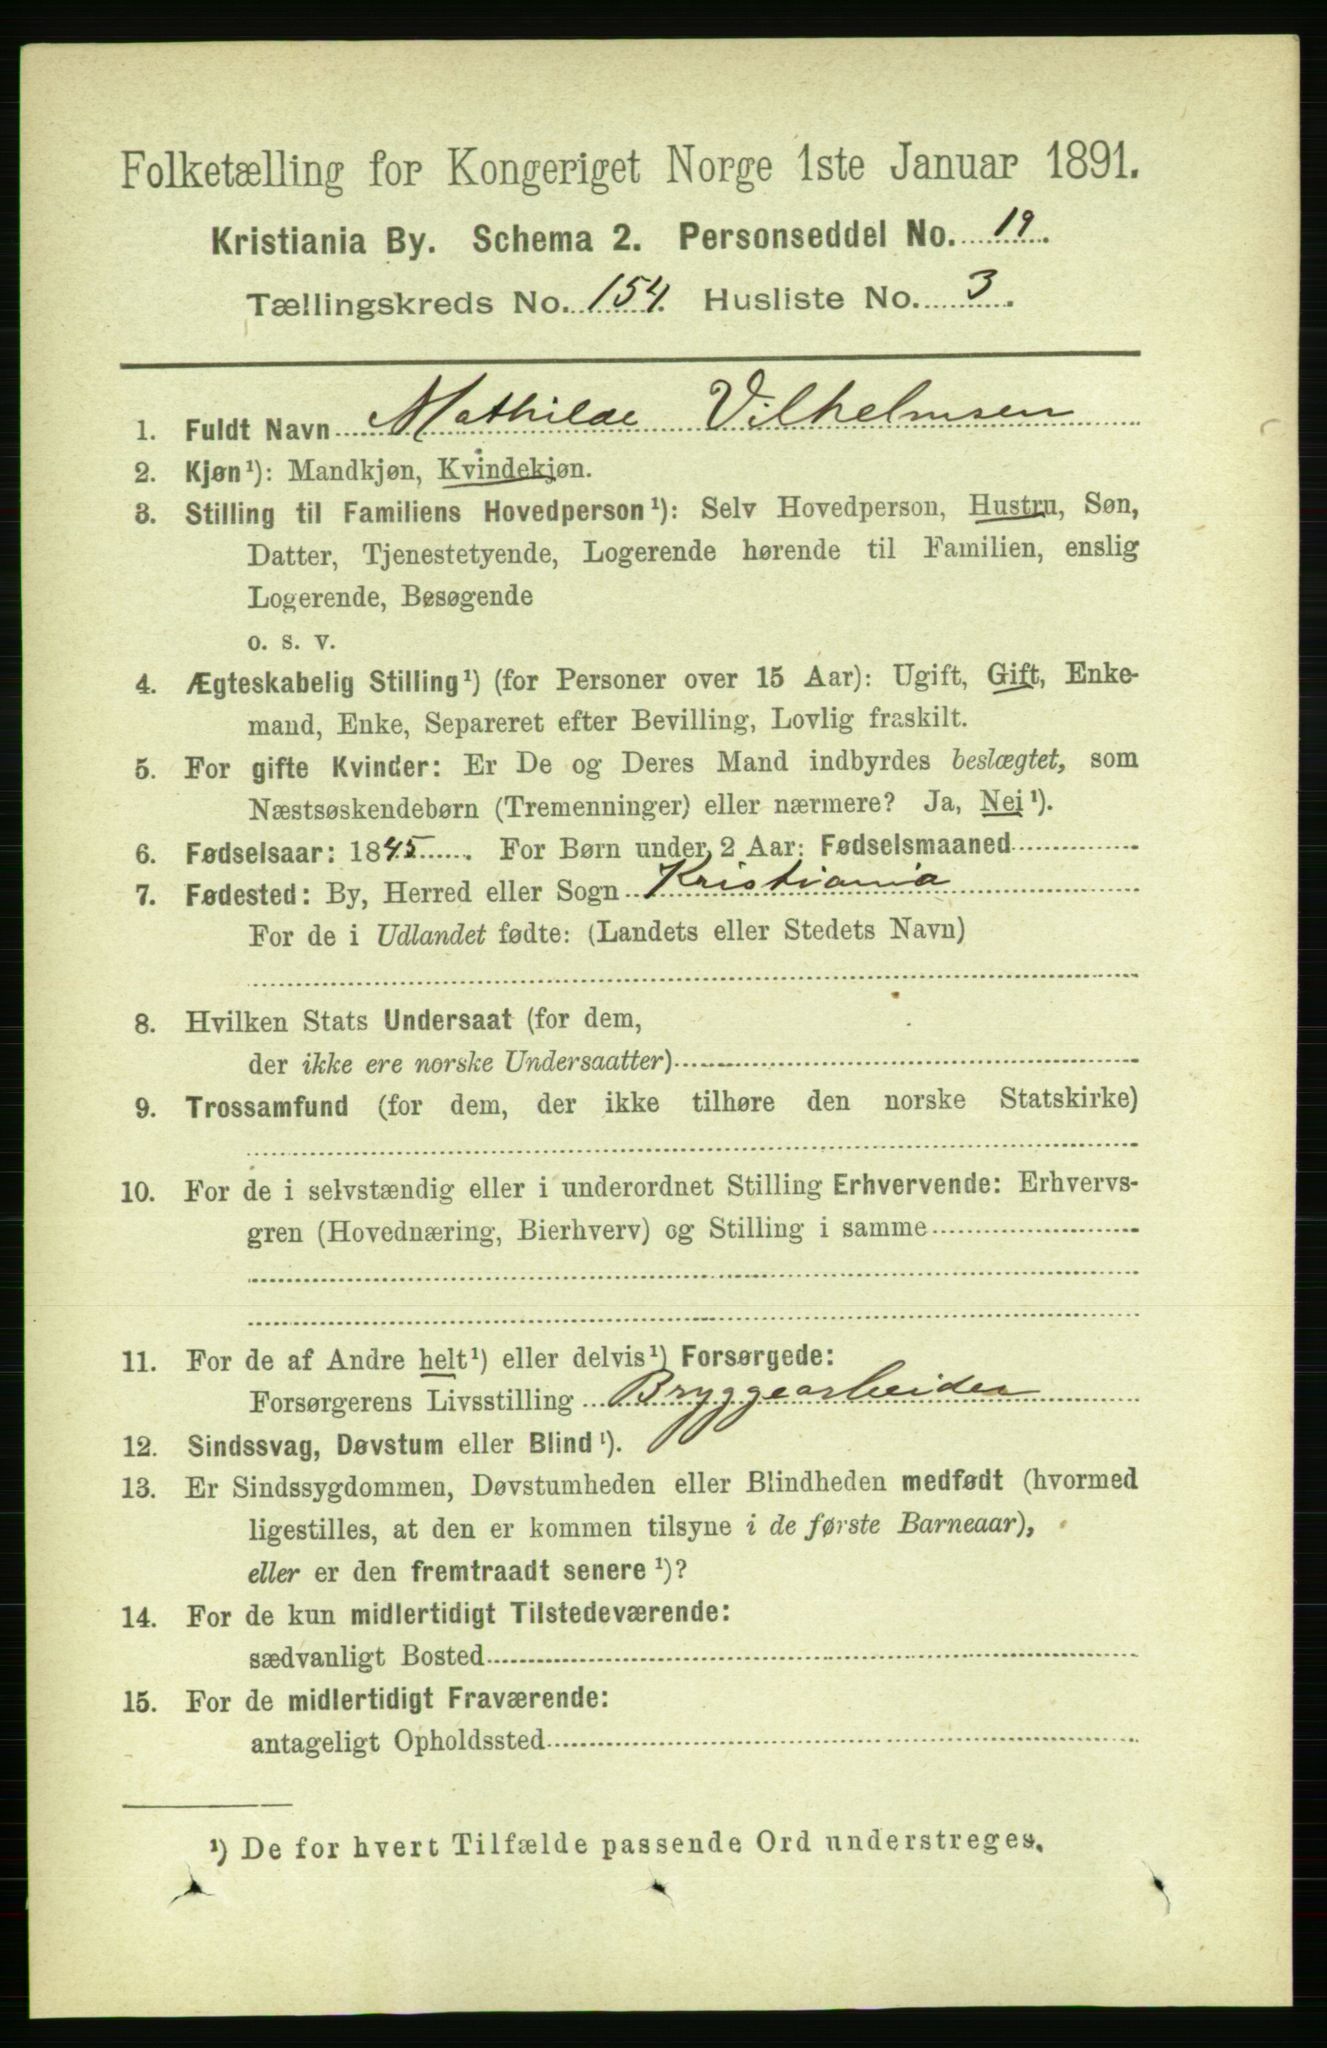 Folketælling for Kongeriget Norge 1ste Januar 1891.
Kristiania By. Schema 2. Personseddel No. 19.
Tællingskreds No. 154. Husliste No. 3.
1. Fuldt Navn Mathilde Vilhelmsen
2. Kjøn¹): Mandkjøn, Kvindekjøn.
3. Stilling til Familiens Hovedperson¹): Selv Hovedperson, Hustru, Søn,
Datter, Tjenestetyende, Logerende hørende til Familien, enslig
Logerende, Besøgende
o. s. v.
4. Ægteskabelig Stilling¹) (for Personer over 15 Aar): Ugift, Gift, Enke-
mand, Enke, Separeret efter Bevilling, Lovlig fraskilt.
5. For gifte Kvinder: Er De og Deres Mand indbyrdes beslægtet, som
Næstsøskendebørn (Tremenninger) eller nærmere? Ja, Nei¹).
6. Fødselsaar: 1845. For Børn under 2 Aar: Fødselsmaaned
7. Fødested: By, Herred eller Sogn Kristiania
For de i Udlandet fødte: (Landets eller Stedets Navn)
8. Hvilken Stats Undersaat (for dem,
der ikke ere norske Undersaatter)
9. Trossamfund (for dem, der ikke tilhøre den norske Statskirke)
10. For de i selvstændig eller i underordnet Stilling Erhvervende: Erhvervs-
gren (Hovednæring, Bierhverv) og Stilling i samme
11. For de af Andre helt¹) eller delvis¹) Forsørgede:
Forsørgerens Livsstilling Bryggearbeider
12. Sindssvag, Døvstum eller Blind¹).
13. Er Sindssygdommen, Døvstumheden eller Blindheden medfødt (hvormed
ligestilles, at den er kommen tilsyne i de første Barneaar),
eller er den fremtraadt senere¹)?
14. For de kun midlertidigt Tilstedeværende:
sædvanligt Bosted
15. For de midlertidigt Fraværende:
antageligt Opholdssted
¹) De for hvert Tilfælde passende Ord understreges.